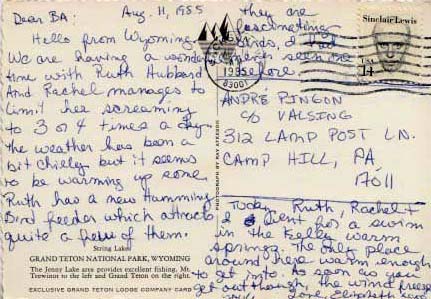 Dear BA: Aug. 11, 1985
Hello from Wyoming.
We are having a wonderful
time with Ruth Hubbard
And Rachel manages to
limit her screaming
to 3 or 4 times a day.
the weather has been a
bit chilly but it seems
to be warming up some
Ruth has a new Humming
Bird feeder which attracts
quite a few of them.
they are
fascinating
birds, I had
never seen one
before.
String Lake
GRAND TETON NATIONAL PARK, WYOMING
The Jenny Lake area provides excellent fishing. Mt.
Trewinor to the left and Grand Teton on the right.
EXCLUSIVE GRAND TETON LODGE COMPANY CARD
PHOTOGRAPH BY RAY ATKESON
1985
83001
Sinclair Lewis
USA
14¢
ANDRÉ PINGON
c/o VALSING
312 LAMP POST LN.
CAMP HILL, PA
17011
Today Ruth, Rachel &
I went for a swim
in the Kelly warm
springs. The only place
around here warm enough
to get into. As soon as you
get out though, the wind freezes
you. Love, Elizabeth